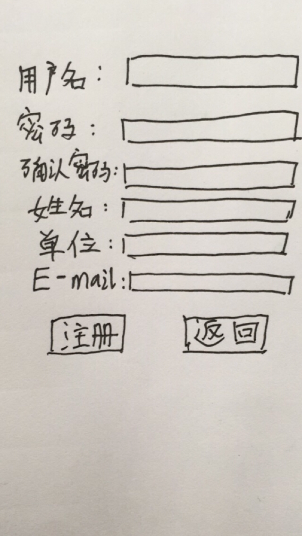 用户名：
密码：
确认密码：
姓名：
单位：
E-mail：
注册 返回